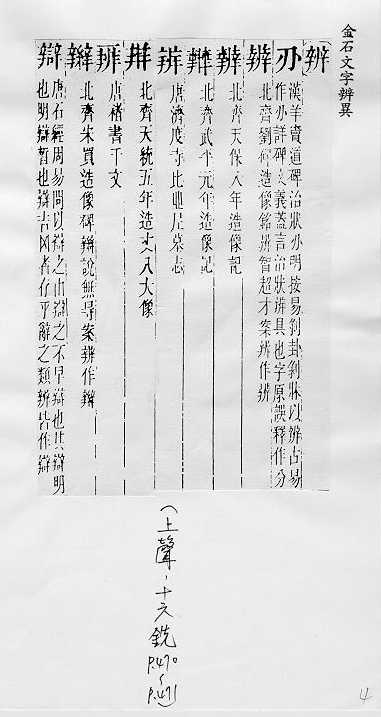 金石文字辨異
辨
漢羊竇道碑治狀 明按易剝卦剝牀以辨古易
作 詳碑文義蓋言治狀辨具也字原誤釋作分
北齊劉碑造像銘辨智超才案辨作
北齊天保八年造像記
北齊武平元年造像記
唐濟度寺比丘尼墓志
北齊天統五年造丈八大像
唐楷書千文
北齊朱買造像碑辯說無㝵案辨作
辯 唐石經周易問以辯之由辯之不早辯也其辯明
也明辯晳也辯吉凶者存乎辭之類辨皆作辯
(上聲、十六銑
p.470
~
p.471)
4